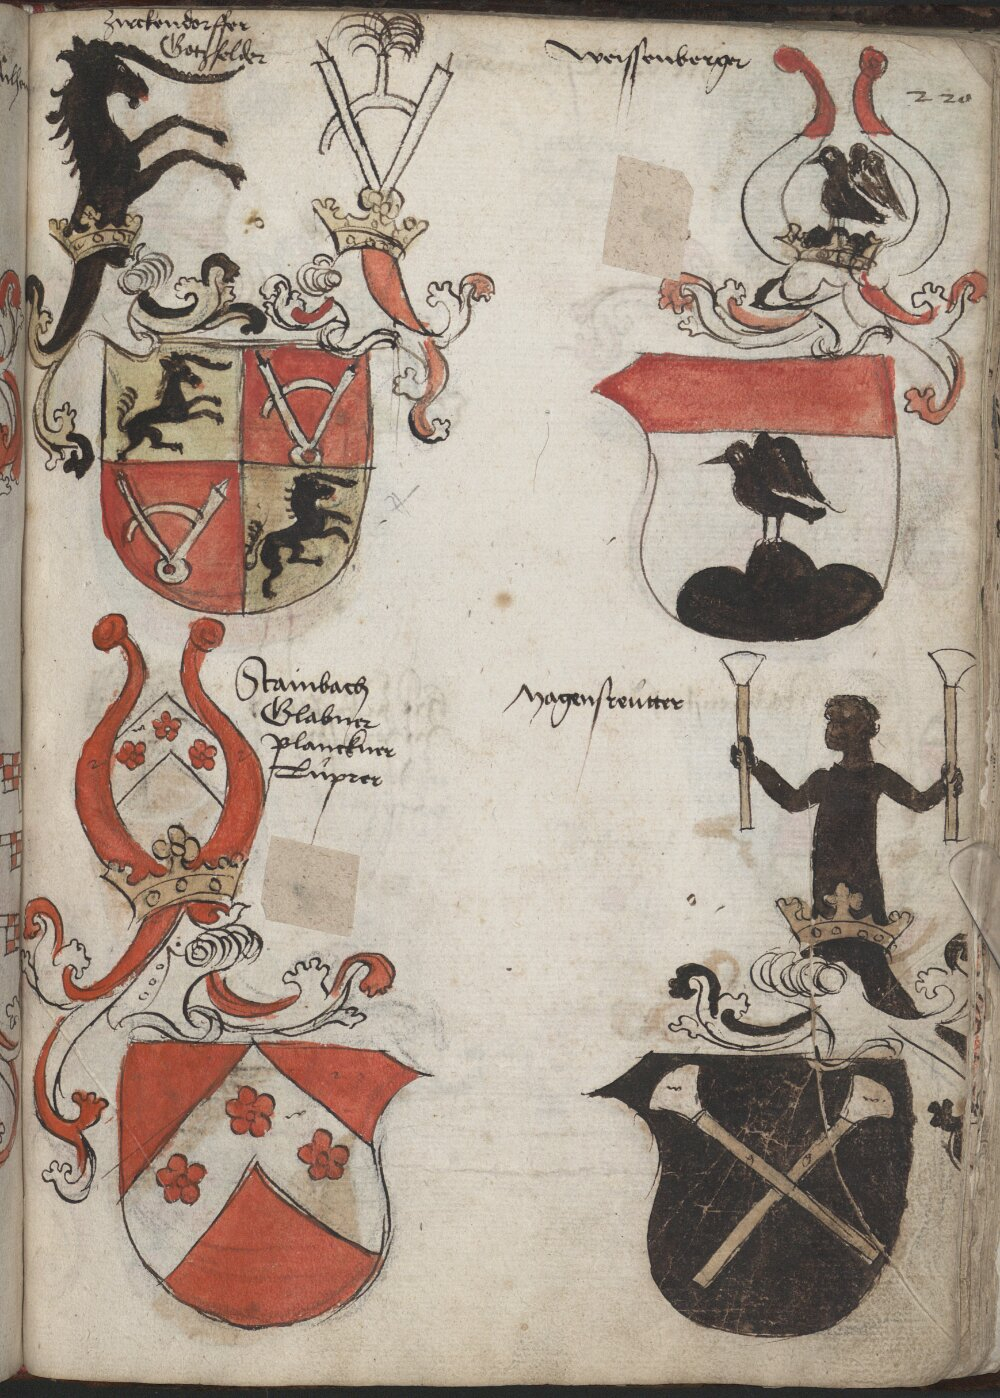 Zirckendorffer
Gotzfelder
Weissenberger
220
Stainbach
Glabner
Planckner
Rüprer
Magenstreütter